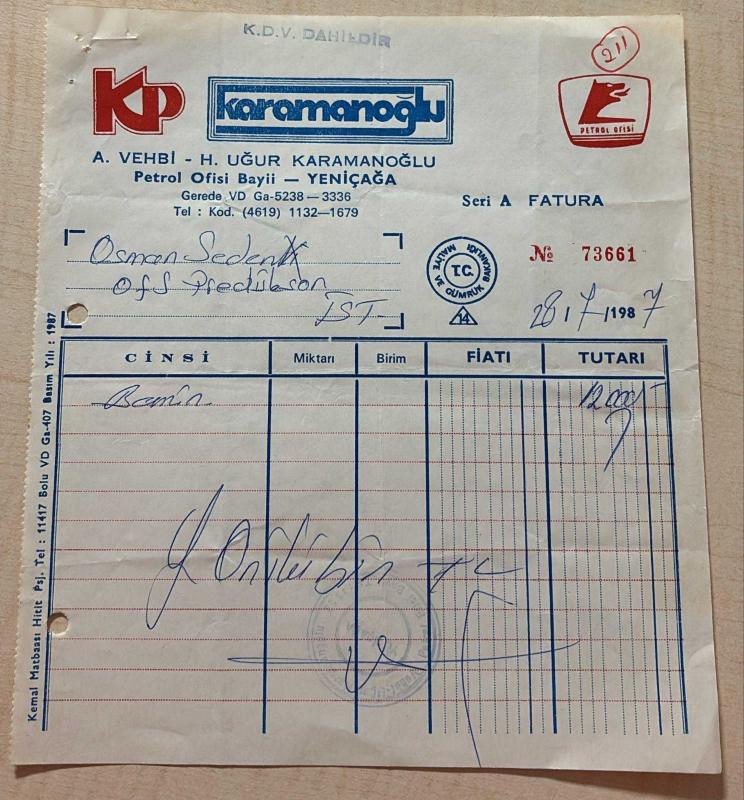 K.D.V. DAHİLDİR
211
KP
karamanoğlu
PETROL OFİSİ
A. VEHBİ - H. UĞUR KARAMANOĞLU
Petrol Ofisi Bayii — YENİÇAĞA
Gerede VD Ga-5238 — 3336
Tel : Kod. (4619) 1132—1679
Seri A FATURA
Osman Seden
Ofs Prodükson
İST-
T.C.
MALİYE VE GÜMRÜK BAKANLIĞI
14
№ 73661
28 / 7 / 1987
CİNSİ Miktarı Birim FİATI TUTARI
Benzin 12000
Y. Onikibin TL
Kemal Matbaası Hitit Psj. Tel : 11417 Bolu VD Ga-407 Basım Yılı : 1987